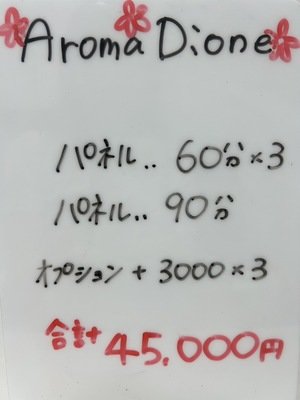 Aroma Dione
パネル.. 60分×3
パネル.. 90分
オプション + 3000×3
合計 45,000円